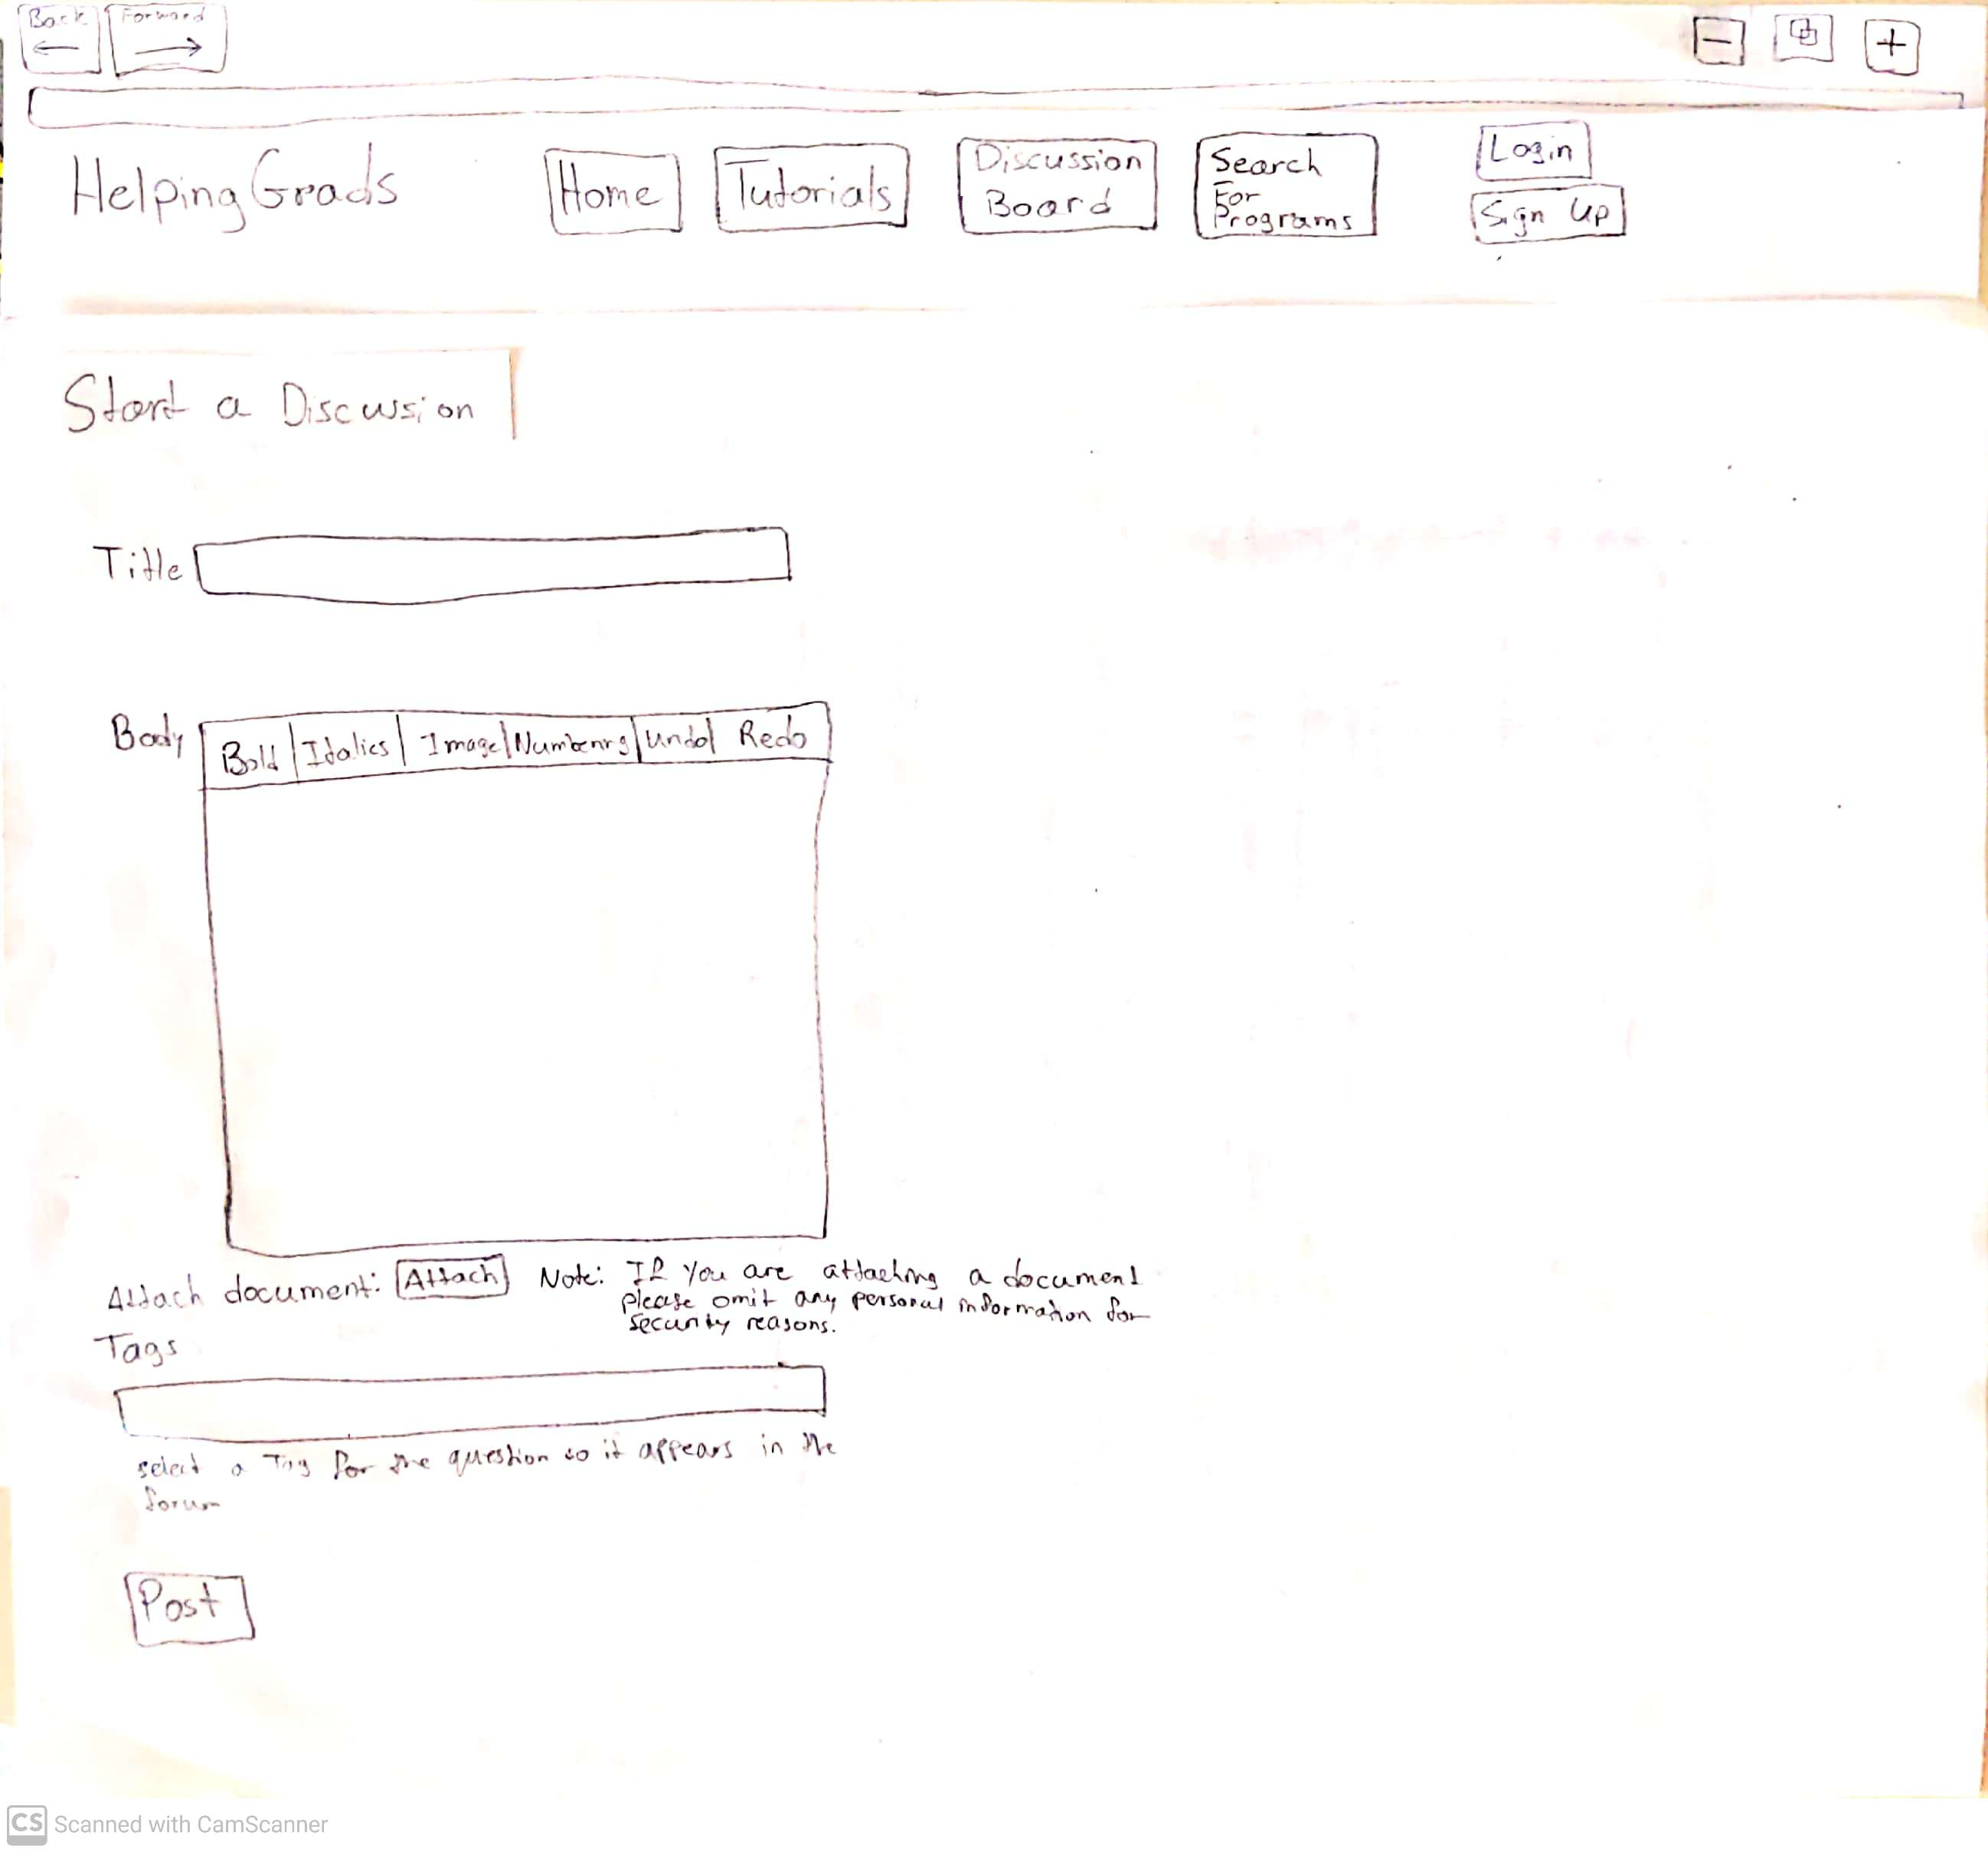 Back Forward
HelpingGrads
Home
Tutorials
Discussion
Board
Search
For
Programs
Login
Sign Up
Start a Discussion
Title
Body
Bold Italics Image Numbering Undo Redo
Attach document: Attach Note: If you are attaching a document
please omit any personal information for
security reasons.
Tags
select a Tag for the question so it appears in the
forum
Post
CS Scanned with CamScanner